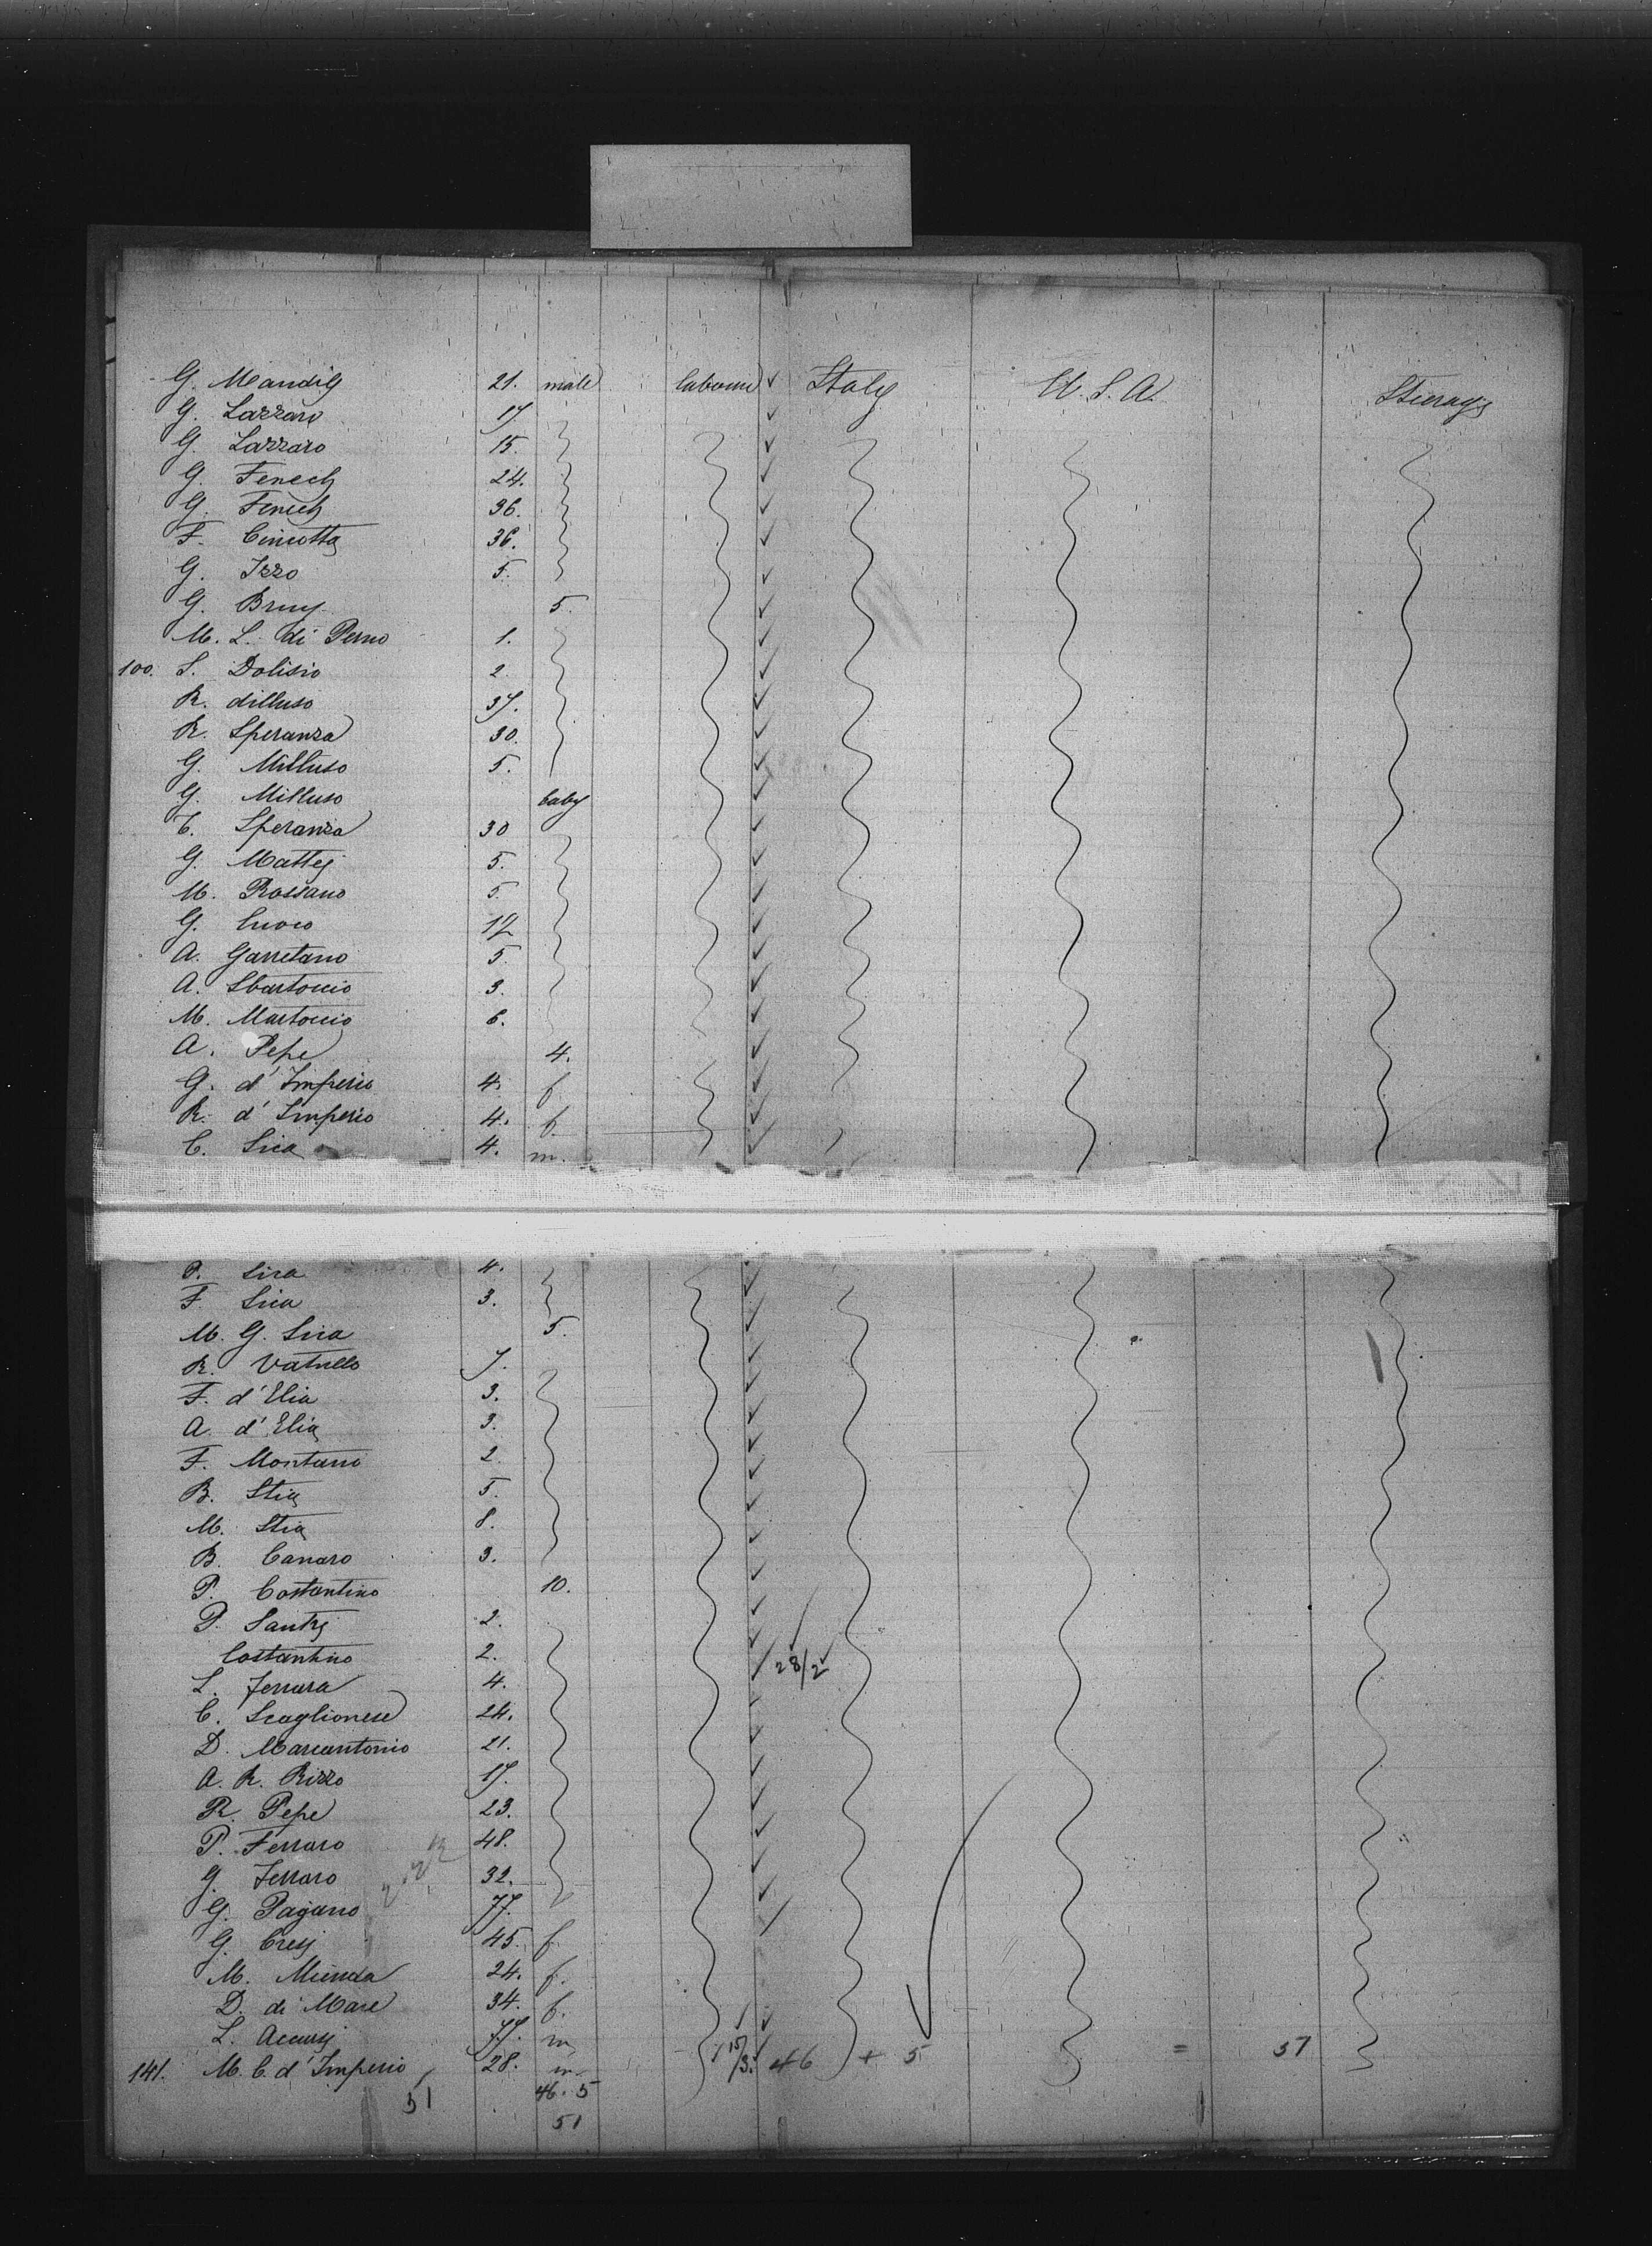 G. Mandig 21. male labourer ✓ Italy U. S. A. Steerage
G. Lazzaro 17. ✓
G. Lazzaro 15. ✓
G. Fenech 24. ✓
G. Fenech 36. ✓
F. Cincotta 36. ✓
G. Izzo 5. ✓
G. Bruy 5. ✓
M. L. di Perno 1. ✓
100. S. Dolisio 2. ✓
R. dilluso 37. ✓
R. Speranza 30. ✓
G. Milluso 5. ✓
G. Milluso baby ✓
C. Speranza 30 ✓
G. Mattej 5. ✓
M. Rossano 5. ✓
G. Cuoco 12 ✓
A. Garretano 5. ✓
A. Sbartoccio 3. ✓
M. Martoccio 6. ✓
A. Pepe 4. ✓
G. d'Imperio 4. f. ✓
R. d'Imperio 4. f. ✓
C. Sica 4. m. ✓
P. Sica 4. ✓
F. Sica 3. ✓
M. G. Sica 5. ✓
R. Vatrello 7. ✓
F. d'Elia 3. ✓
A. d'Elia 3. ✓
F. Montano 2. ✓
B. Stia 5. ✓
M. Stia 8. ✓
B. Canaro 3. ✓
P. Costantino 10. ✓
P. Santij 2. ✓
Costantino 2. ✓ 28/2
L. Ferrara 4. ✓
C. Scaglionese 24. ✓
D. Marcantonio 21. ✓
A. R. Rizzo 17. ✓
R. Pepe 23. ✓
P. Ferraro 48. ✓
G. Ferraro 32. ✓
G. Pagano 77. ✓
G. Cresj 45. f. ✓
M. Miinda 24. f.
D. di Mare 34. f. ✓
L. Accursj 77. m ✓
141. M. C. d'Imperio 28. m. 15/3. 46 + 5 = 51
51 46. 5
51